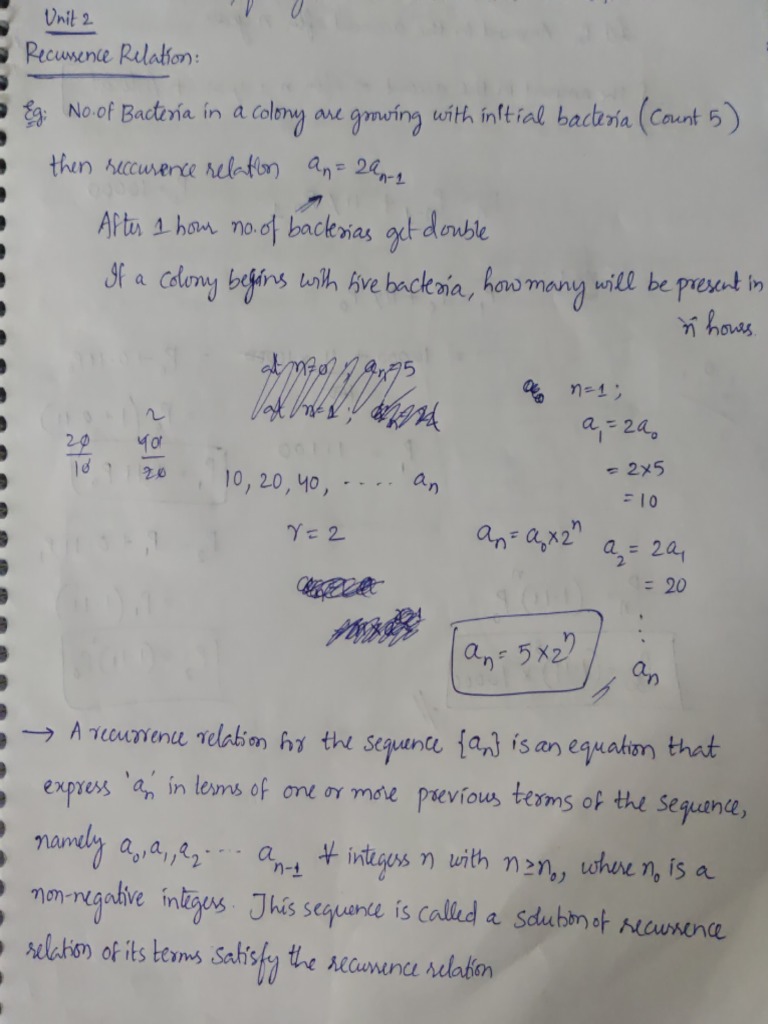 Unit 2
Recurrence Relation:
Eg: No. of Bacteria in a colony are growing with initial bacteria (Count 5)
then reccurence relation aₙ = 2aₙ₋₁
After 1 hour no. of bacterias get double
If a colony begins with five bacteria, how many will be present in
'n' hours.
n=1;
a₁ = 2a₀
= 2×5
= 10
20/10, 40/20
2
10, 20, 40, ..... aₙ
r = 2
aₙ = a₀×2ⁿ
a₂ = 2a₁
= 20
⋮
aₙ
aₙ = 5×2ⁿ
→ A recurrence relation for the sequence {aₙ} is an equation that
express 'aₙ' in terms of one or more previous terms of the sequence,
namely a₀, a₁, a₂ .... aₙ₋₁ ∀ integers n with n≥n₀, where n₀ is a
non-negative integers. This sequence is called a solution of recurrence
relation of its terms satisfy the recurrence relation